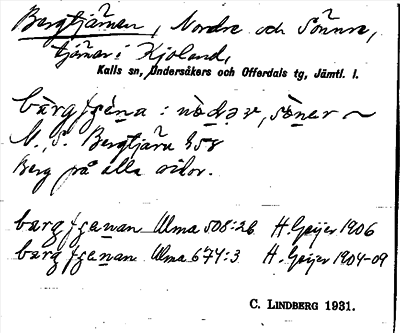 Bergtjärnen, Nordre och Sönnre,
tjärnar i Kjoland,
Kalls sn, Undersåkers och Offerdals tg, Jämtl. l.
bàrgʃɛ̀na : nòdəɐ, sònər ~
N., S. Bergtjärn 958
Berg på alla sidor.
bargʃɛnan Ulma 508:26 H. Geijer 1906
bargʃɛnan Ulma 674:3 H. Geijer 1904-09
C. LINDBERG 1931.